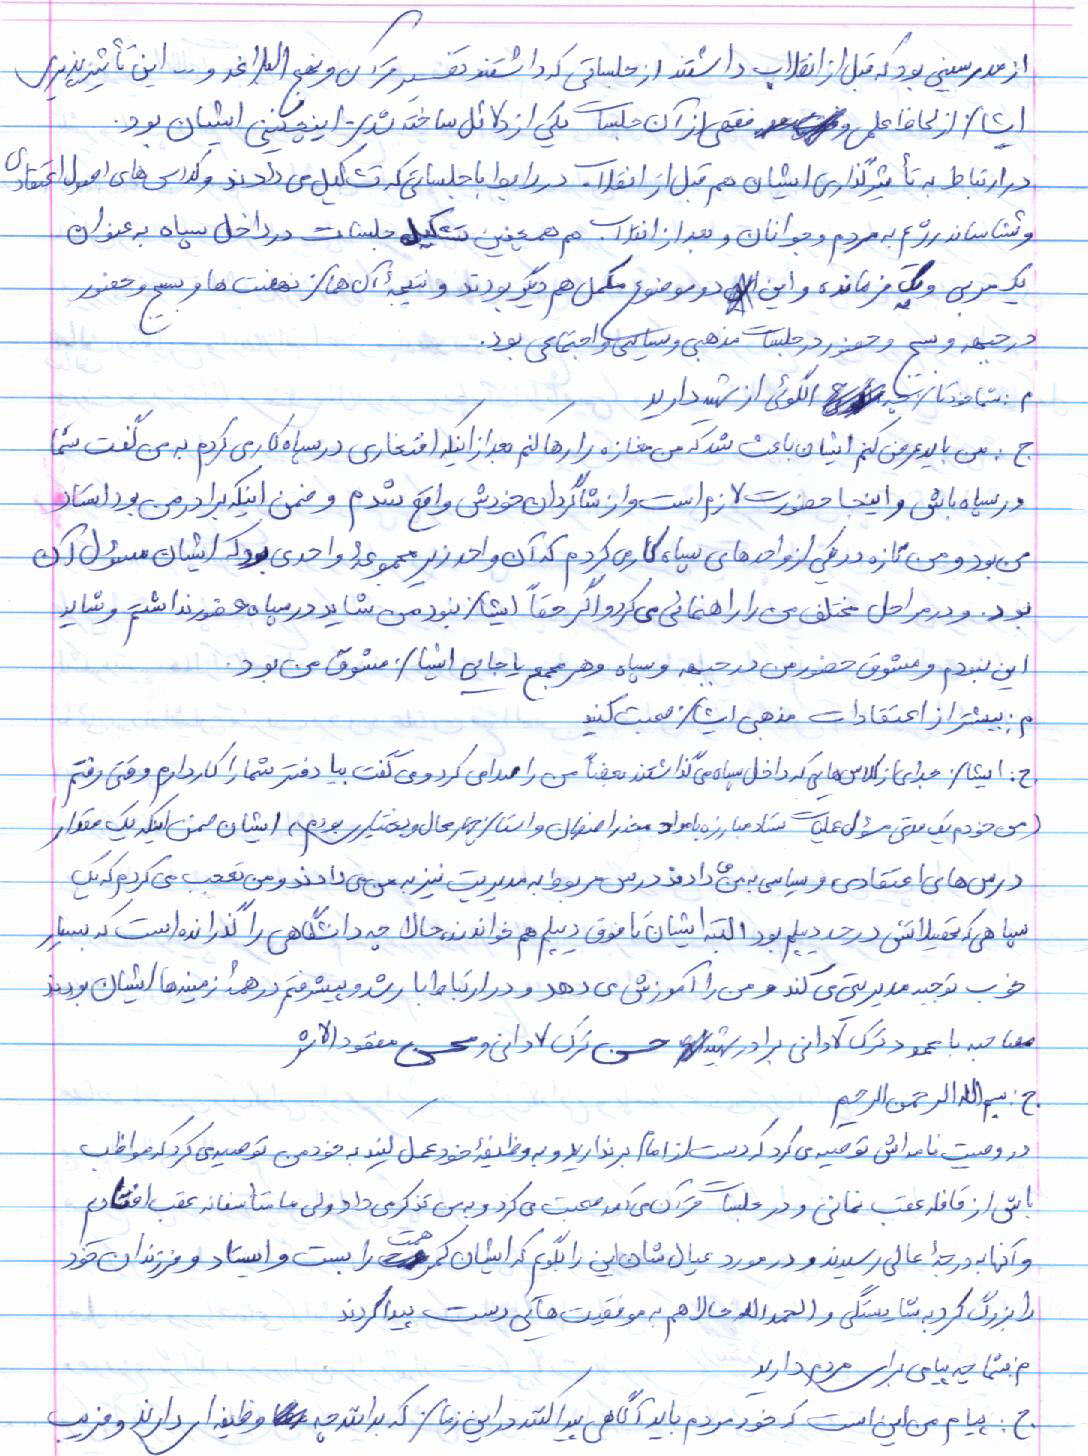 از مدرسینی بود که قبل از انقلاب داشتند از جلساتی که داشتند تفسیر قرآن و نهج البلاغه و ... این تأثیرپذیری
ایشان از لحاظ علمی و فقهی از آن جلسات یکی از دلائل ساخته شدن اینچنینی ایشان بود.
در ارتباط به تأثیرگذاری ایشان هم قبل از انقلاب در رابطه با جلساتی که تشکیل می دادند و کلاس های اصول اعتقادی
و شناساندن رژیم به مردم و جوانان و بعد از انقلاب هم همچنین تشکیل جلسات در داخل سپاه به عنوان
یک مربی و یک فرمانده و این دو موضوع مکمل هم دیگر بودند و نتیجۀ آن هم از نهضت ها و بسیج و حضور
در جبهه و بسیج و حضور در جلسات مذهبی و سیاسی و اجتماعی بود.
م: شما خودتان چه الگوئی از شهید دارید
ج: من باید عرض کنم ایشان باعث شد که من مغازه را رها کنم بعد از اینکه افتخاری در سپاه کار می کردم به من گفت شما
در سپاه باش و اینجا حضورت لازم است و از شاگردان خودش واقع شدم و ضمن اینکه برادر من بود استاد
من بود و من تازه در یکی از واحدهای سپاه کار می کردم که آن واحد زیر مجموعۀ واحدی بود که ایشان مسئول آن
بود. و در مراحل مختلف من را راهنمائی می کرد و اگر حقاً ایشان نبود من شاید در سپاه حضور نداشتم و شاید
این نبودم و مشوق حضور من در جبهه و سپاه و هر مجمع یا جایی ایشان مشوق من بود.
م: بیشتر از اعتقادات مذهبی ایشان صحبت کنید
ج: ایشان جدای از کلاس هایی که داخل سپاه می گذاشتند بعضاً من را صدا می کرد و می گفت بیا دفتر شما را کار دارم وقتی رفتم
(من خودم یک مدتی مسئول عملیات ستاد مبارزه با مواد مخدر اصفهان و استان چهارمحال و بختیاری بودم) ایشان ضمن اینکه یک مقدار
درس های اعتقادی و سیاسی به من می دادند درس مربوط به مدیریت نیز به من می دادند و من تعجب می کردم که یک
سپاهی که تحصیلاتش در حد دیپلم بود البته ایشان تا فوق دیپلم هم خواندند، حالا چه دانشگاهی را گذرانده است که بسیار
خوب توجیه مدیریتی می کند و من را آموزش می دهد و در ارتباط با رشد و پیشرفتم در همۀ زمینه ها ایشان بودند
مصاحبه با محمود ترک لادانی برادر شهید حسن ترک لادانی و محسن مفقود الاثر
ج: بسم الله الرحمن الرحیم
در وصیت نامه اش توصیه می کرد که دست از امام برندارید و به وظیفۀ خود عمل کنید به خود من توصیه می کرد که مواظب
باش از قافله عقب نمانی و در جلسات قرآن می آمد صحبت می کرد و به من تذکر می داد ولی ما متأسفانه عقب افتادیم
و آنها به درجۀ عالی رسیدند و در مورد عیال شان این را بگویم که ایشان کمر همت را بست و ایستاد و فرزندان خود
را بزرگ کرد به شایستگی و الحمدالله حالا هم به موفقیت هایی دست پیدا کردند
م: شما چه پیامی برای مردم دارید
ج: پیام من این است که خود مردم باید آگاهی پیدا کنند در این زمان که بدانند چه وظیفه ای دارند و فریب